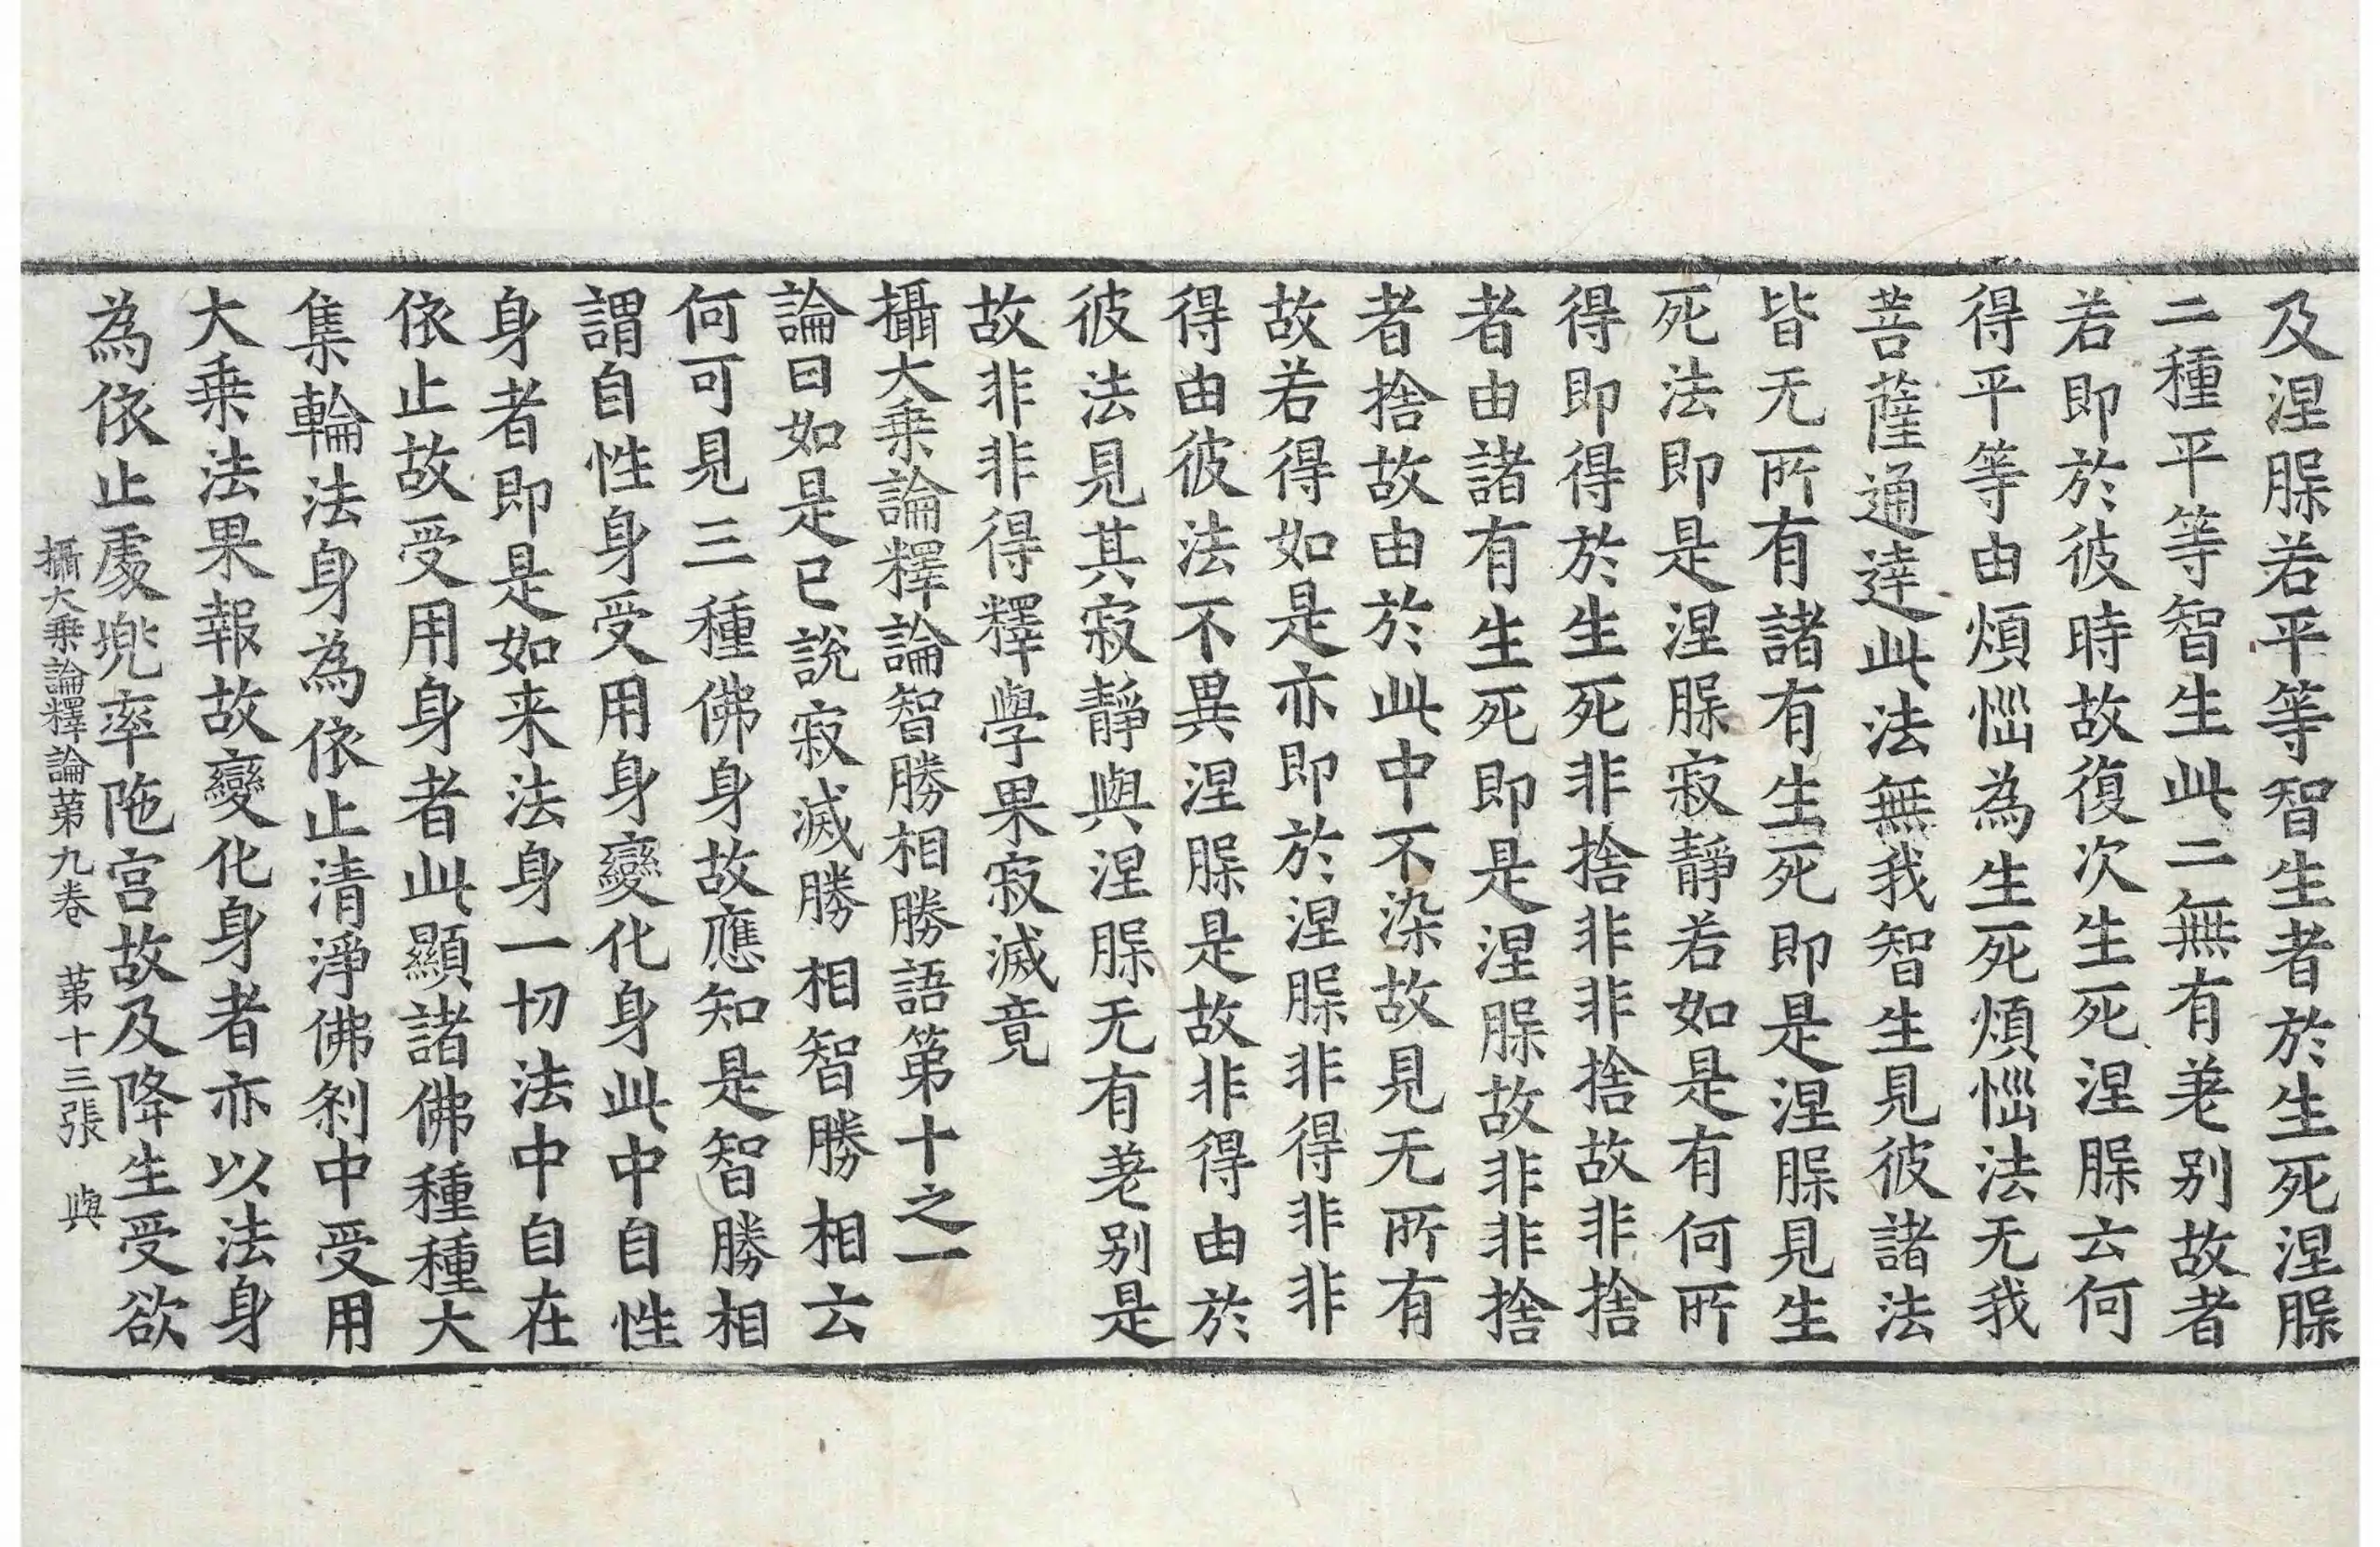 及涅槃若平等智生者於生死涅槃
二種平等智生此二無有差别故者
若即於彼時故復次生死涅槃云何
得平等由煩惱為生死煩惱法无我
菩薩通達此法無我智生見彼諸法
皆无所有諸有生死即是涅槃見生
死法即是涅槃寂靜若如是有何所
得即得於生死非捨非非捨故非捨
者由諸有生死即是涅槃故非非捨
者捨故由於此中不染故見无所有
故若得如是亦即於涅槃非得非非
得由彼法不異涅槃是故非得由於
彼法見其寂靜與涅槃无有差别是
故非非得釋學果寂滅竟
攝大乗論釋論智勝相勝語第十之一
論曰如是已說寂滅勝相智勝相云
何可見三種佛身故應知是智勝相
謂自性身受用身變化身此中自性
身者即是如来法身一切法中自在
依止故受用身者此顯諸佛種種大
集輪法身為依止清淨佛刹中受用
大乗法果報故變化身者亦以法身
為依止處兜率陁宫故及降生受欲
攝大乗論釋論第九卷 第十三張 與